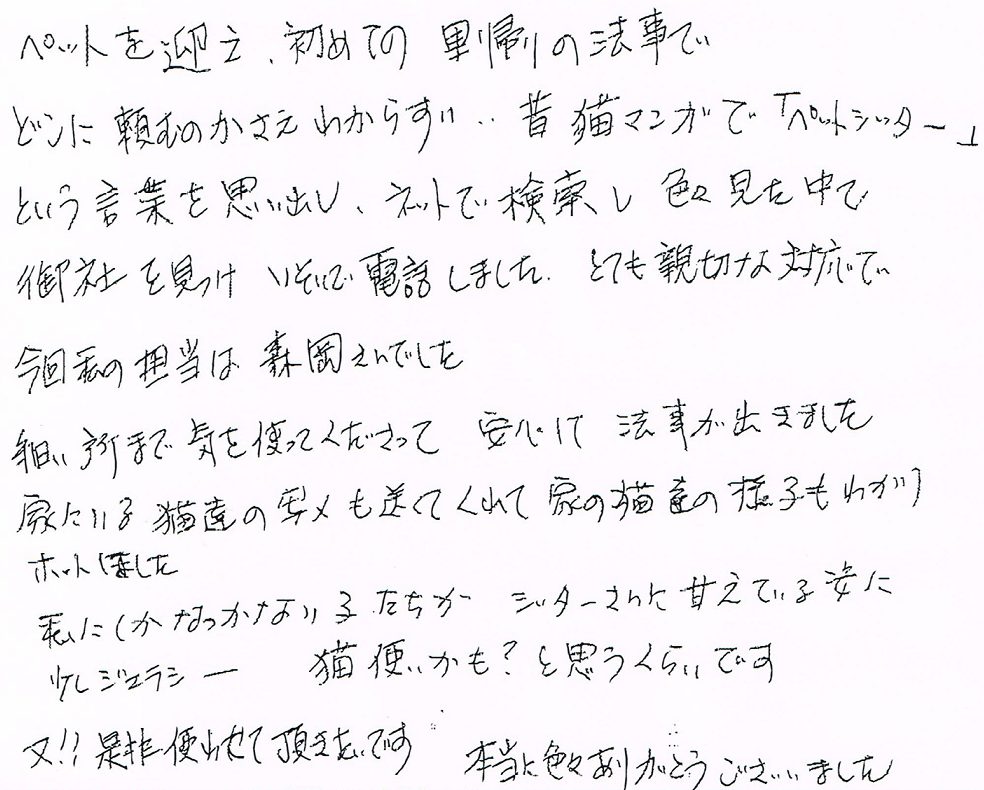 ペットを迎え、初めての里帰りの法事で
どこに頼むのかさえわからず‥昔猫マンガで「ペットシッター」
という言葉を思い出し、ネットで検索し色々見た中で
御社を見つけいそいで電話しました。とても親切な対応で
今回私の担当は森岡さんでした
細い所まで気を使ってくださって 安心して 法事が出きました
家にいる猫達の写メも送てくれて家の猫達の様子もわかり
ホットしました
私にしかなつかない子たちが シッターさんに甘えている姿に
少しジェラシー 猫使いかも?と思うくらいです
又!!是非使わせて頂きたいです 本当に色々ありがとうございました